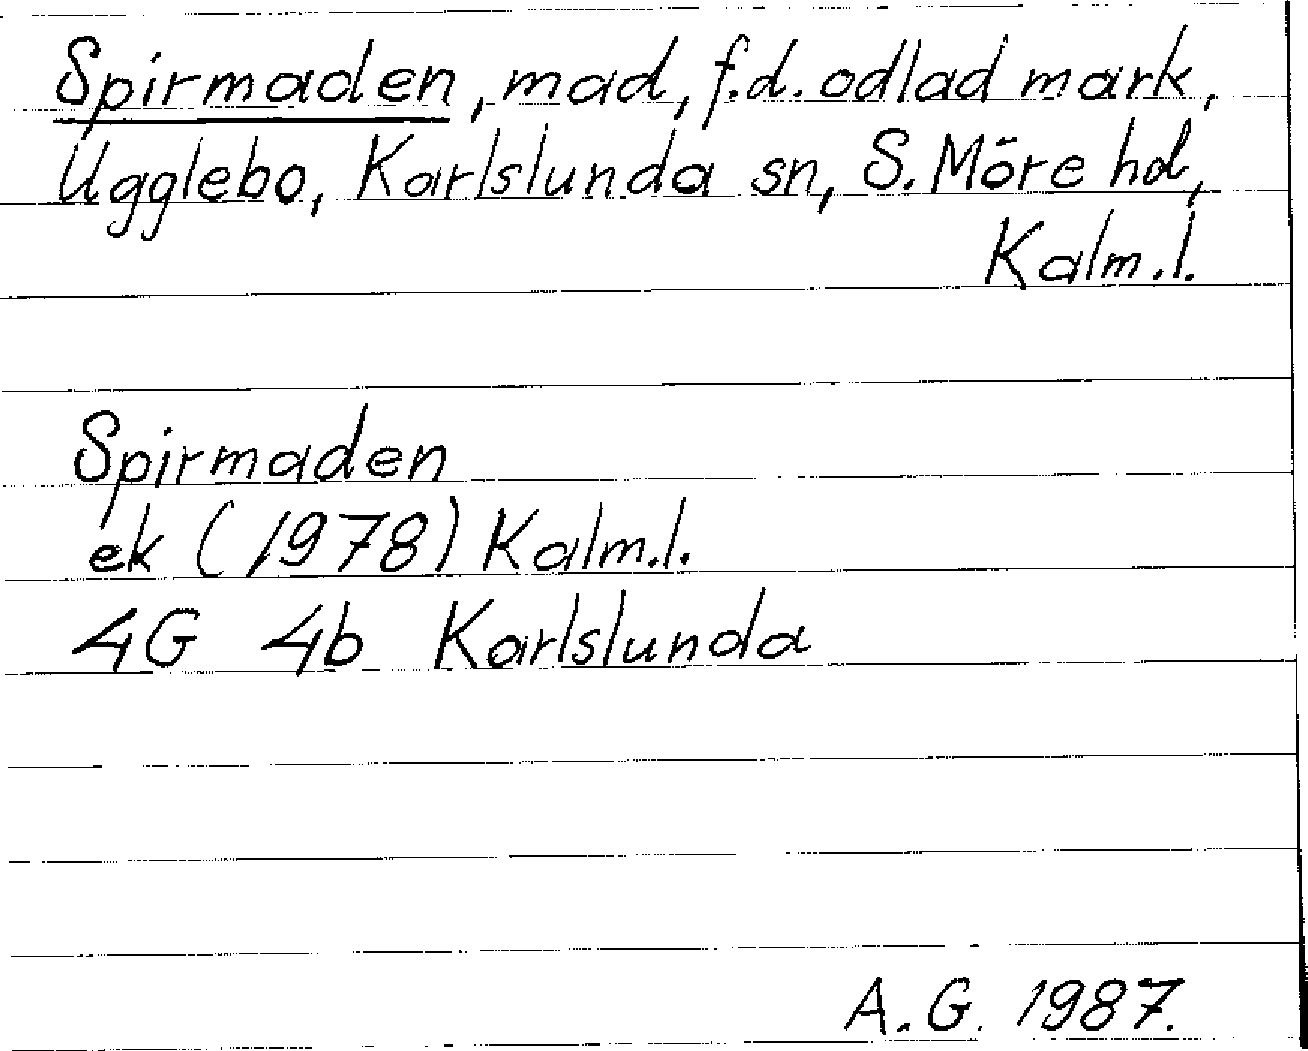 Spirmaden, mad, f.d. odlad mark,
Ugglebo, Karlslunda sn, S. Möre hd,
Kalm.l.
Spirmaden
ek (1978) Kalm.l.
4G 4b Karlslunda
A.G. 1987.